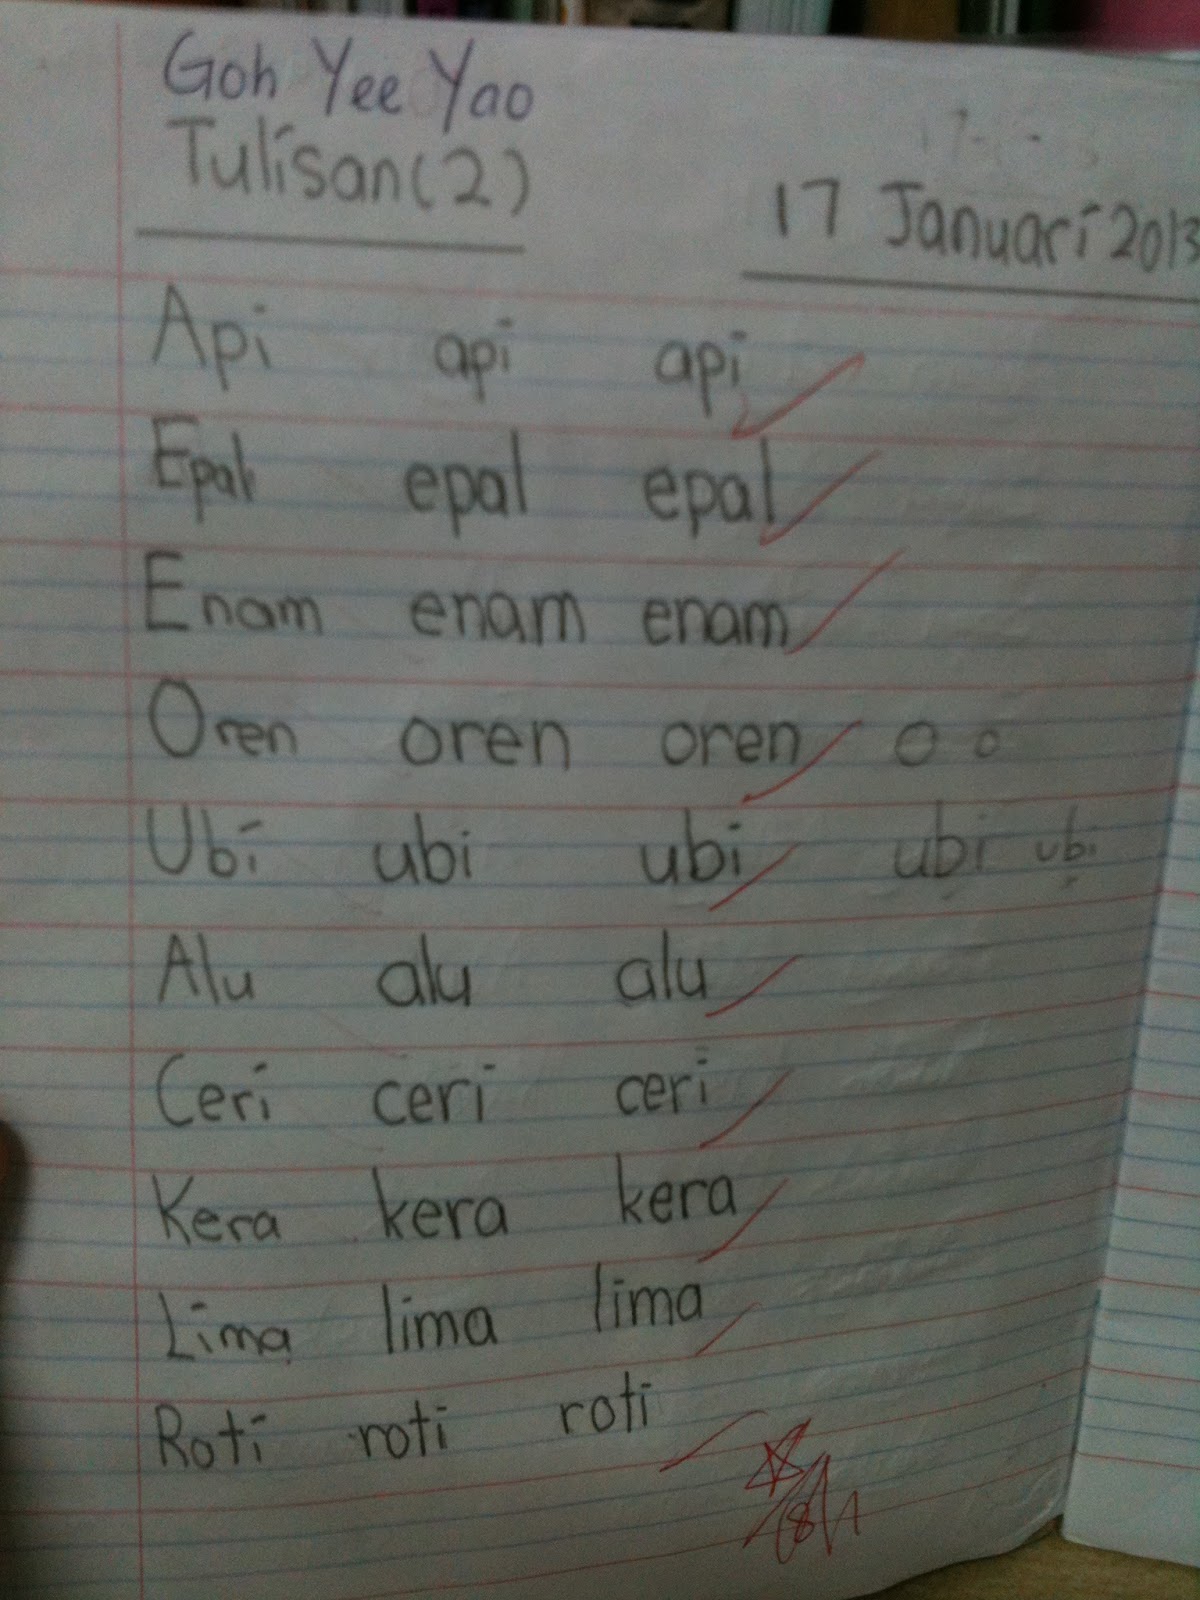 Goh Yee Yao
Tulisan(2)
17 Januari 2013
Api api api
Epal epal epal
Enam enam enam
Oren oren oren o o
Ubi ubi ubi ubi ubi
Alu alu alu
Ceri ceri ceri
Kera kera kera
Lima lima lima
Roti roti roti
18/1